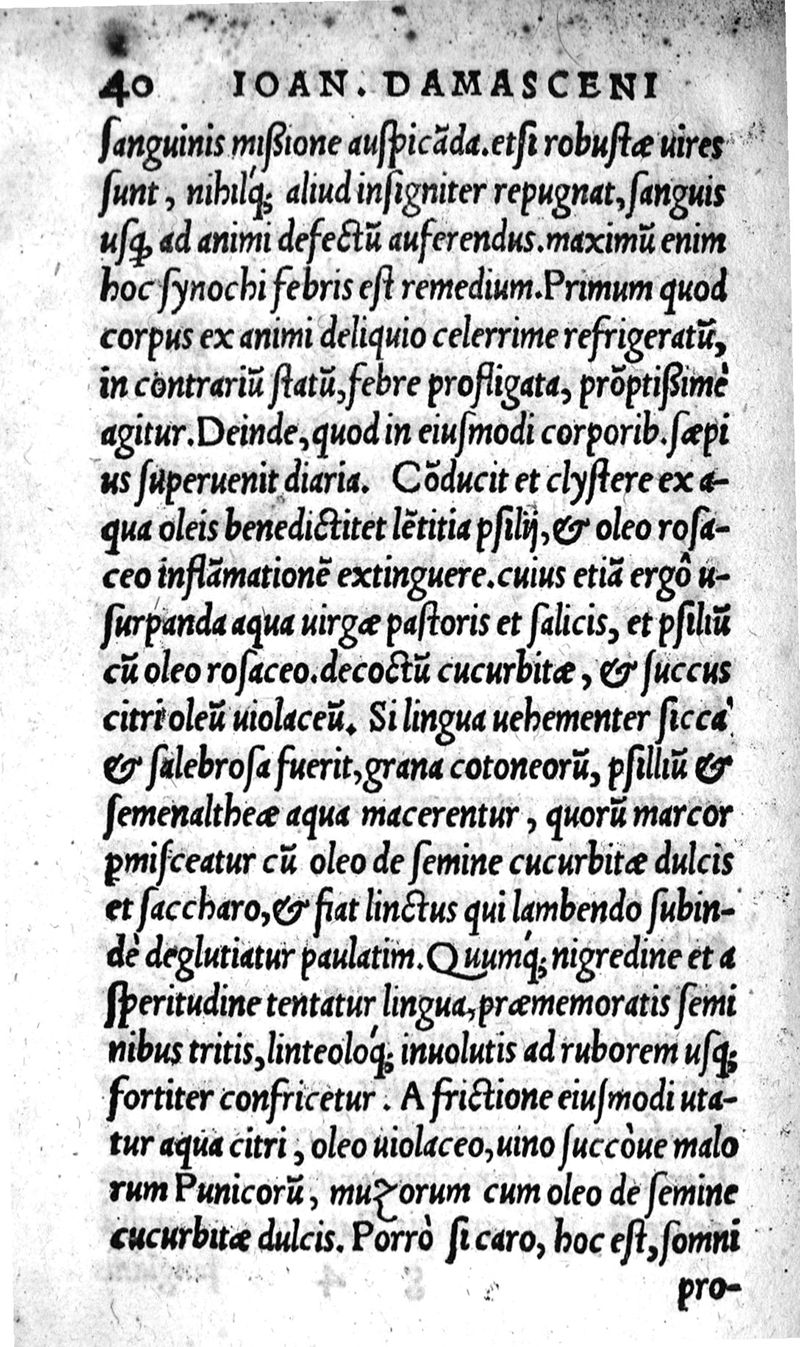 40 IOAN. DAMASCENI
ſanguinis mißione auſpicãda.etſi robuſtæ uires
ſunt, nihilq́; aliud inſigniter repugnat,ſanguis
uſq; ad animi defectũ auferendus.maximũ enim
hoc ſynochi febris eſt remedium.Primum quod
corpus ex animi deliquio celerrime refrigeratũ,
in contrariũ ſtatũ,febre profligata, prõptißimè
agitur.Deinde,quod in eiuſmodi corporib.ſæpi
us ſuperuenit diaria. Cõducit et clyſtere ex a-
qua oleis benedictitet lẽtitia pſilij,& oleo roſa-
ceo inflãmationẽ extinguere.cuius etiã ergô u-
ſurpanda aqua uirgæ paſtoris et ſalicis, et pſiliũ
cũ oleo roſaceo.decoctũ cucurbitæ, & ſuccus
citri oleũ uiolaceũ. Si lingua uehementer ſicca
& ſalebroſa fuerit,grana cotoneorũ, pſilliũ &
ſemenaltheæ aqua macerentur, quorũ marcor
ꝑmiſceatur cũ oleo de ſemine cucurbitæ dulcis
et ſaccharo,& fiat linctus qui lambendo ſubin-
dè deglutiatur paulatim.Quumq́; nigredine et a
ſperitudine tentatur lingua,præmemoratis ſemi
nibus tritis,linteoloq́; inuolutis ad ruborem uſq;
fortiter confricetur. A frictione eiuſmodi uta-
tur aqua citri, oleo uiolaceo,uino ſuccòue malo
rum Punicorũ, muzorum cum oleo de ſemine
cucurbitæ dulcis. Porrò ſi caro, hoc eſt,ſomni
pro-